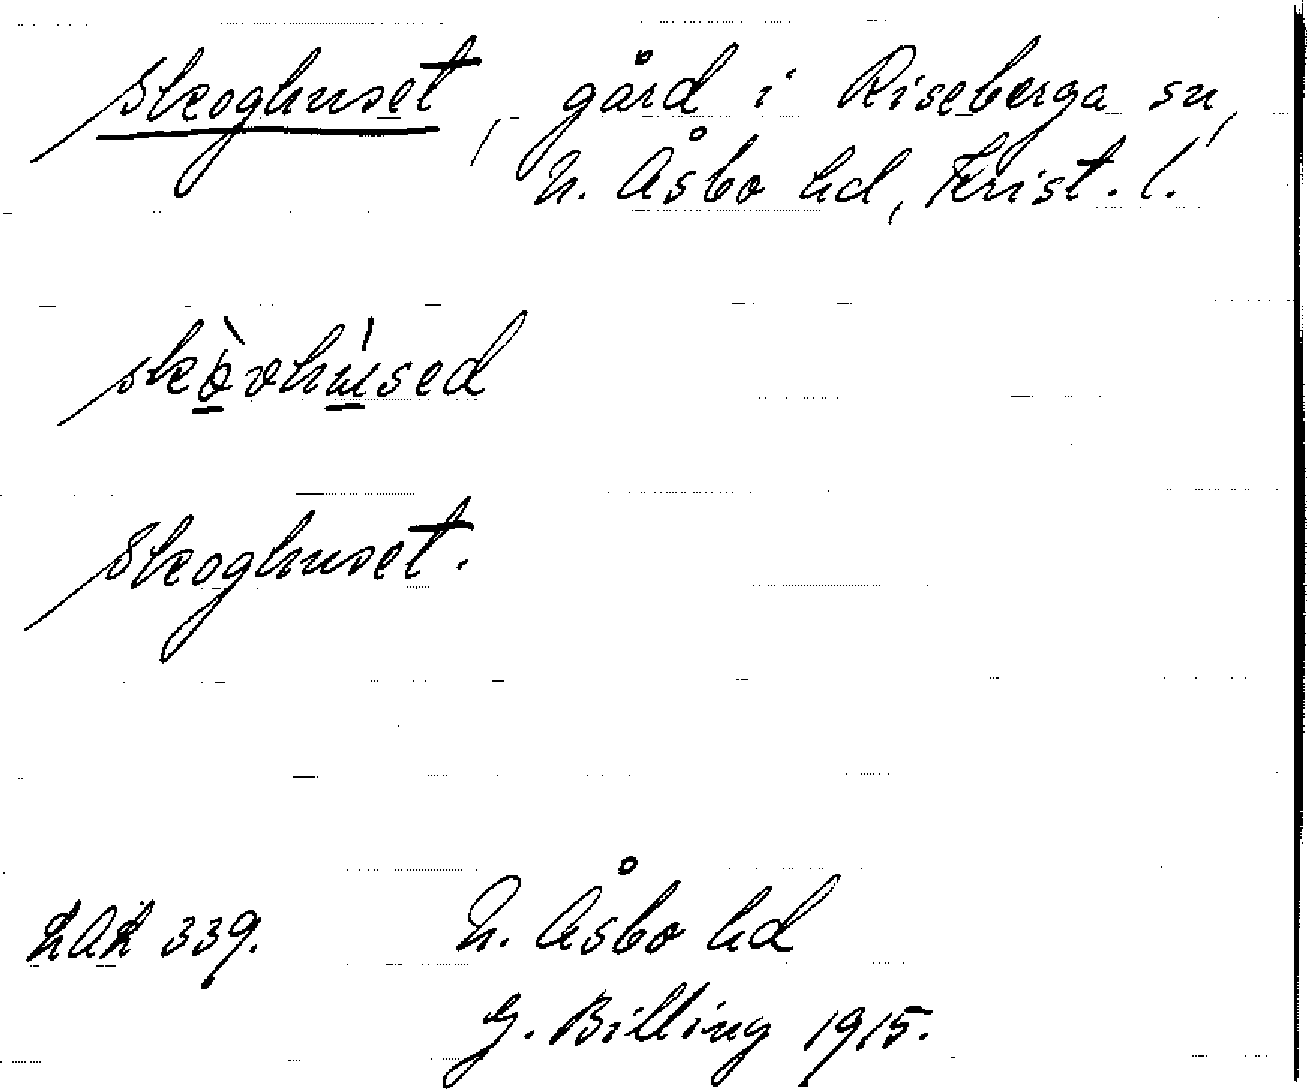 Skoghuset, gård i Riseberga sn,
N. Åsbo hd, Krist. l.
skòvhúsed
Skoghuset.
LAL 339. N. Åsbo hd
G. Billing 1915.